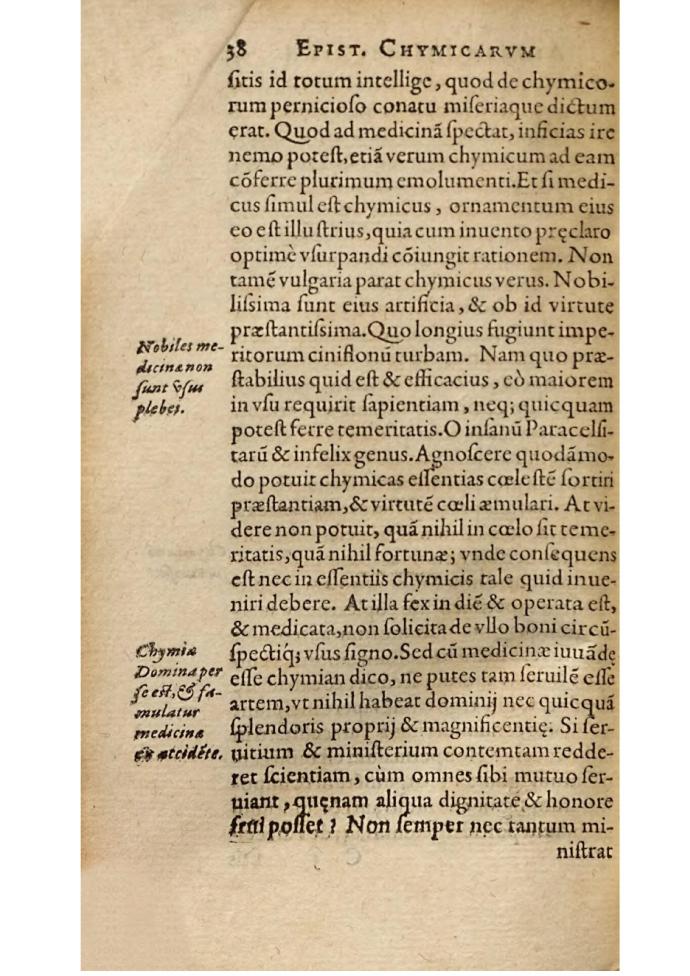 38 EPIST. CHYMICARVM
ſitis id totum intellige, quod de chymico-
rum pernicioſo conatu miſeriaque dictum
erat. Quod ad medicinā ſpectat, inficias ire
nemo poteſt, etiā verum chymicum ad eam
cōferre plurimum emolumenti. Et ſi medi-
cus ſimul eſt chymicus, ornamentum eius
eo eſt illuſtrius, quia cum inuento pręclaro
optimè vſurpandi cōiungit rationem. Non
tamē vulgaria parat chymicus verus. Nobi-
liſsima ſunt eius artificia, & ob id virtute
præſtantiſsima. Quo longius fugiunt impe-
Nobiles me-
dicinæ non
ſunt vſui
plebei.
ritorum ciniflonū turbam. Nam quo præ-
ſtabilius quid eſt & efficacius, eò maiorem
in vſu requirit ſapientiam, neq; quicquam
poteſt ferre temeritatis. O inſanū Paracelſi-
tarū & infelix genus. Agnoſcere quodāmo-
do potuit chymicas eſſentias cœleſtē ſortiri
præſtantiam, & virtutē cœli æmulari. At vi-
dere non potuit, quā nihil in cœlo ſit teme-
ritatis, quā nihil fortunæ; vnde conſequens
eſt nec in eſſentiis chymicis tale quid inue-
niri debere. At illa fex in diē & operata eſt,
& medicata, non ſolicita de vllo boni circū-
Chymia
Domina per
ſe eſt, & fa-
mulatur
medicinæ
ex accidēte.
ſpectiq; vſus ſigno. Sed cū medicinæ iuuāde
eſſe chymian dico, ne putes tam ſeruilē eſſe
artem, vt nihil habeat dominij nec quicquā
ſplendoris proprij & magnificentię. Si ſer-
uitium & miniſterium contemtam redde-
ret ſcientiam, cùm omnes ſibi mutuo ſer-
uiant, quęnam aliqua dignitatē & honore
frui poſſet? Non ſemper nec tantum mi-
niſtrat